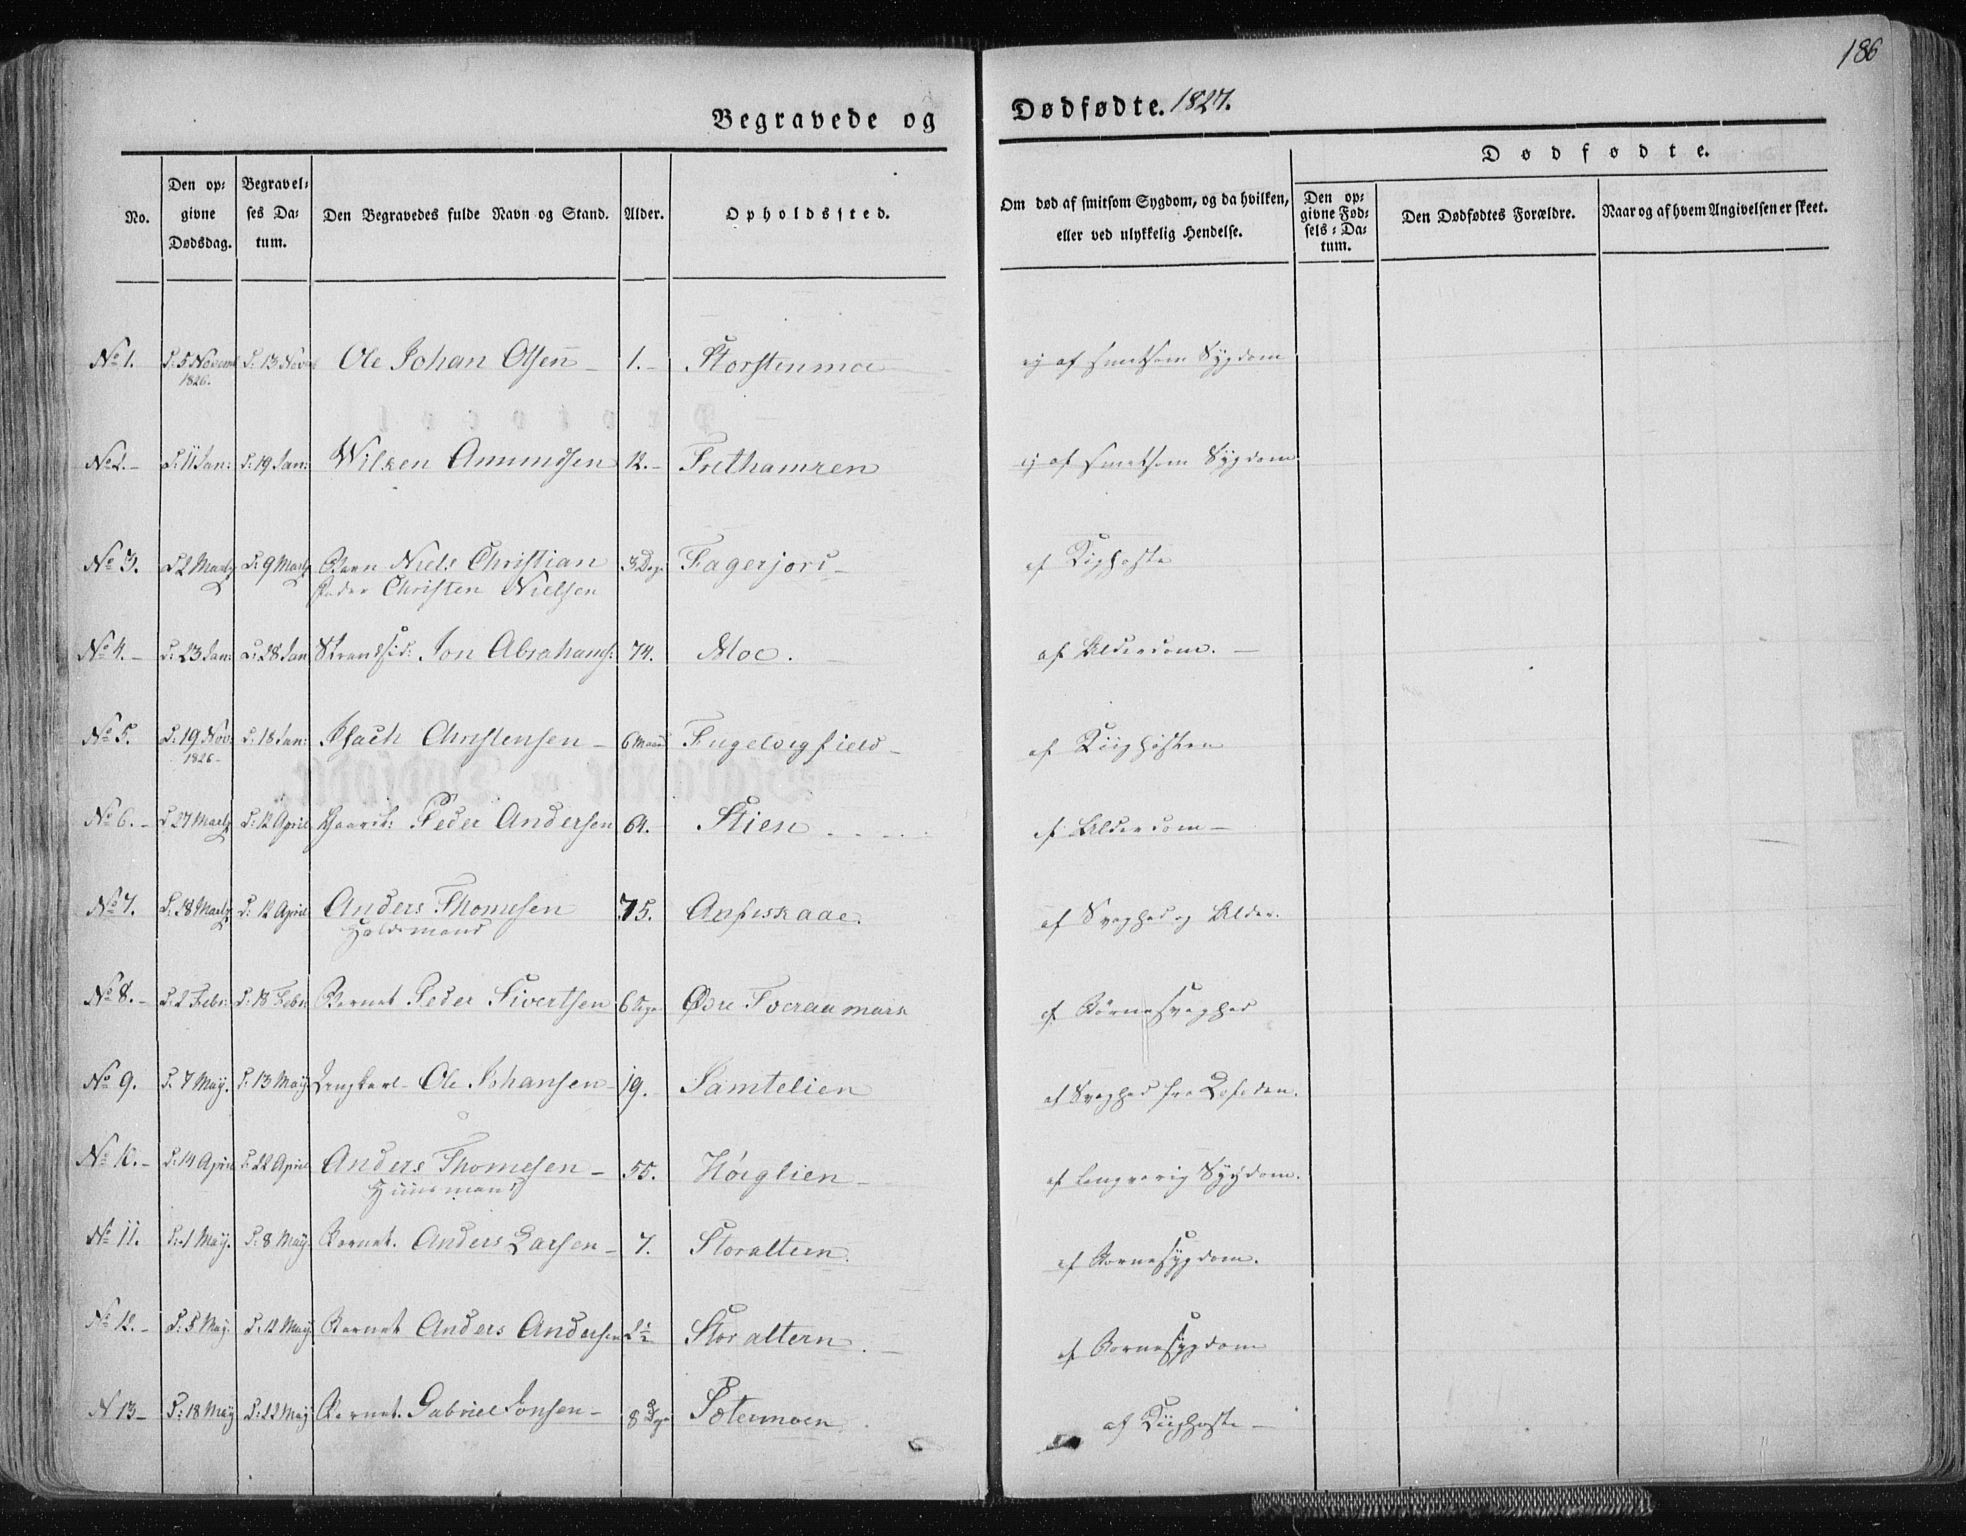 186
Begravede og Dødfødte. 1827.
No.
Den op-
givne
Dødsdag.
Begravel-
ses Da-
tum.
Den Begravedes fulde Navn og Stand.
Alder.
Opholdssted.
Om død af smitsom Sygdom, og da hvilken,
eller ved ulykkelig Hendelse.
Dødfødte.
Den op-
givne Fød-
sels-Da-
tum.
Den Dødfødtes Forældre.
Naar og af hvem Angivelsen er skeet.
No 1. D: 5 Novemb D: 13 Nov Ole Johan Olsen - 1. - Storstenmoe ej af smitsom Sygdom
1826.
No 2. - D: 11 Jan: D: 19 Jan: Wilken Amundsen 12. - Frethamren ej af smitsom Sygdom
No 3. D 2 Martz D: 9 Martz Barn Niels Christian 3 Dage Fagerjord - af Kighoste
Fader Christen Nielsen
No 4. - D: 23 Jan: D: 28 Jan Strandsid: Jon Abrahams: 74. Moe. af Alderdom. -
No 5. D: 19 Nov: D: 18 Jan: Isach Christensen - 6 Maan Fugelvigfield - af Kiighosten
1826 -
No 6. - D 27 Martz D: 12 April Peder Andersen 64. Stien af Alderdom -
No 7. D: 28 Martz D: 12 April Anders Thomesen 75. af Svaghed og Alder.
No 8. - D: 2 Febr: D: 18 Febr Barnet Peder Sivertsen 6 Dage Øvre af Børnesvaghed
No 9. D. 7 May. D: 13 May Ungkarl - Ole Johansen - 19. Samtelien af Svaghed fra Lofoden.
No 10. - D: 14 April D: 22 April Anders Thomesen - 55. Høiglien - af Langvarig Sygdom.
Huusmand
No 11. D: 1 May. D: 8 May. Barnet. Anders Larsen - 7. Storaltern. af Børnesygdom.
No 12. - D: 5 May. D: 12 May Barnet Anders Andersen 2½ Storaltern. - af Børnesygdom
N 13 - D: 18 May D: 22 May Barnet. Gabriel Jonsen - 8 Dage af Kiighoste -